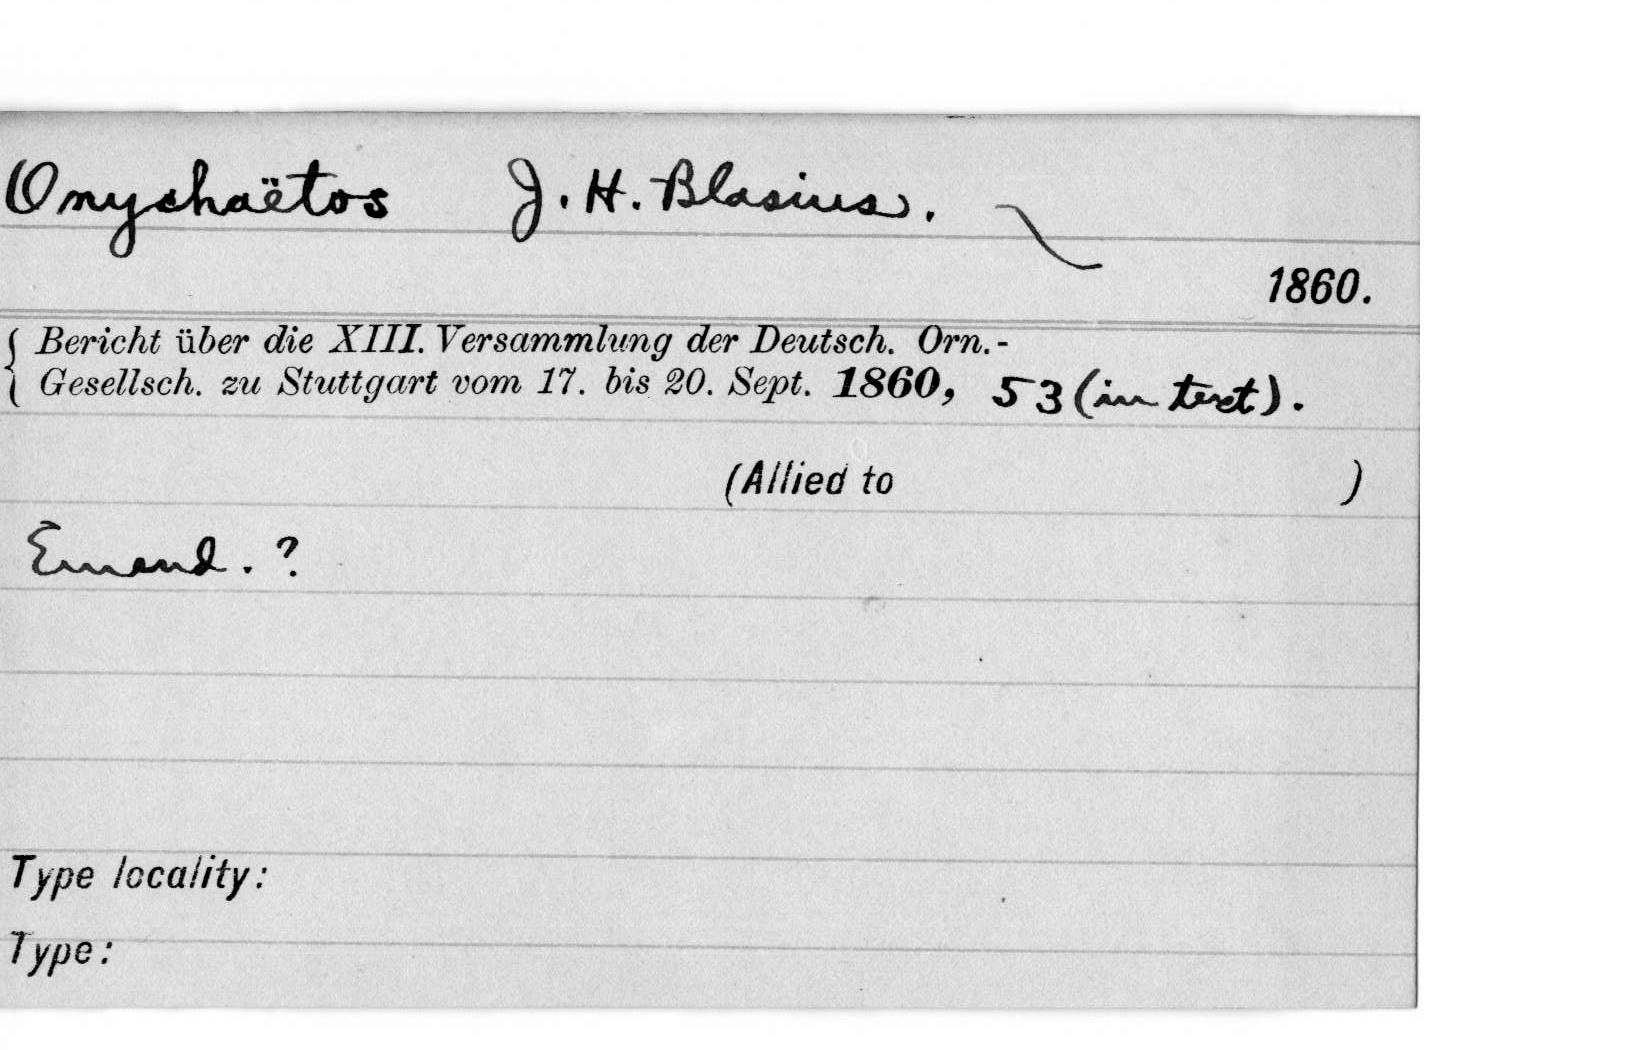 Onychaëtos J. H. Blasius.
1860.
Bericht über die XIII. Versammlung der Deutsch. Orn.-
Gesellsch. zu Stuttgart vom 17. bis 20. Sept. 1860, 53 (in text).
(Allied to )
Emend. ?
Type locality:
Type: